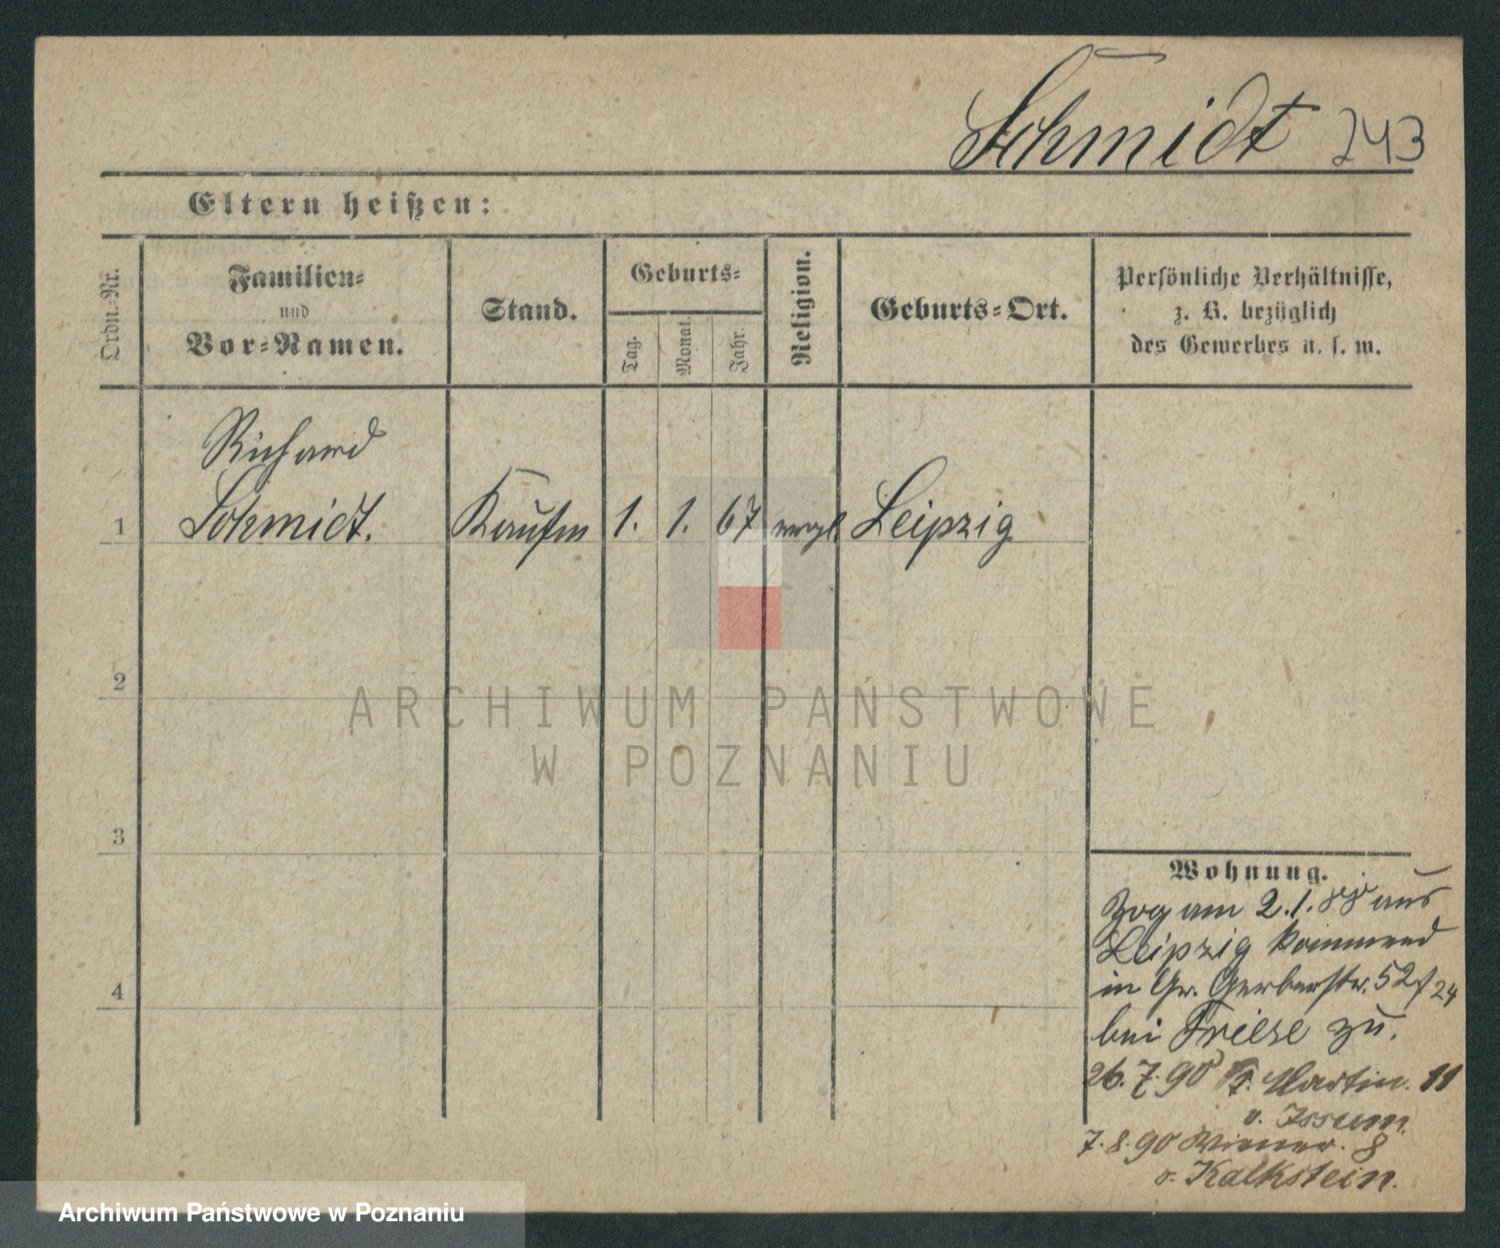 Schmidt 243
Eltern heißen:
Ordn.-Nr.
Familien-
und
Vor-Namen.
Stand.
Geburts-
Tag.
Monat.
Jahr.
Religion.
Geburts-Ort.
Persönliche Verhältnisse,
z. B. bezüglich
des Gewerbes u. s. w.
Richard
1 Schmidt. Kaufm 1. 1. 67 evgl. Leipzig
2
3
4
ARCHIWUM PAŃSTWOWE
W POZNANIU
Wohnung.
Zog am 2.1.88 aus
Leipzig kommend
in Gr. Gerberstr. 52 24
bei Friese zu.
26.7.90 St. Martin. 11
v. Issum.
7.8.90 Wiener. 8
v. Kalkstein.
Archiwum Państwowe w Poznaniu